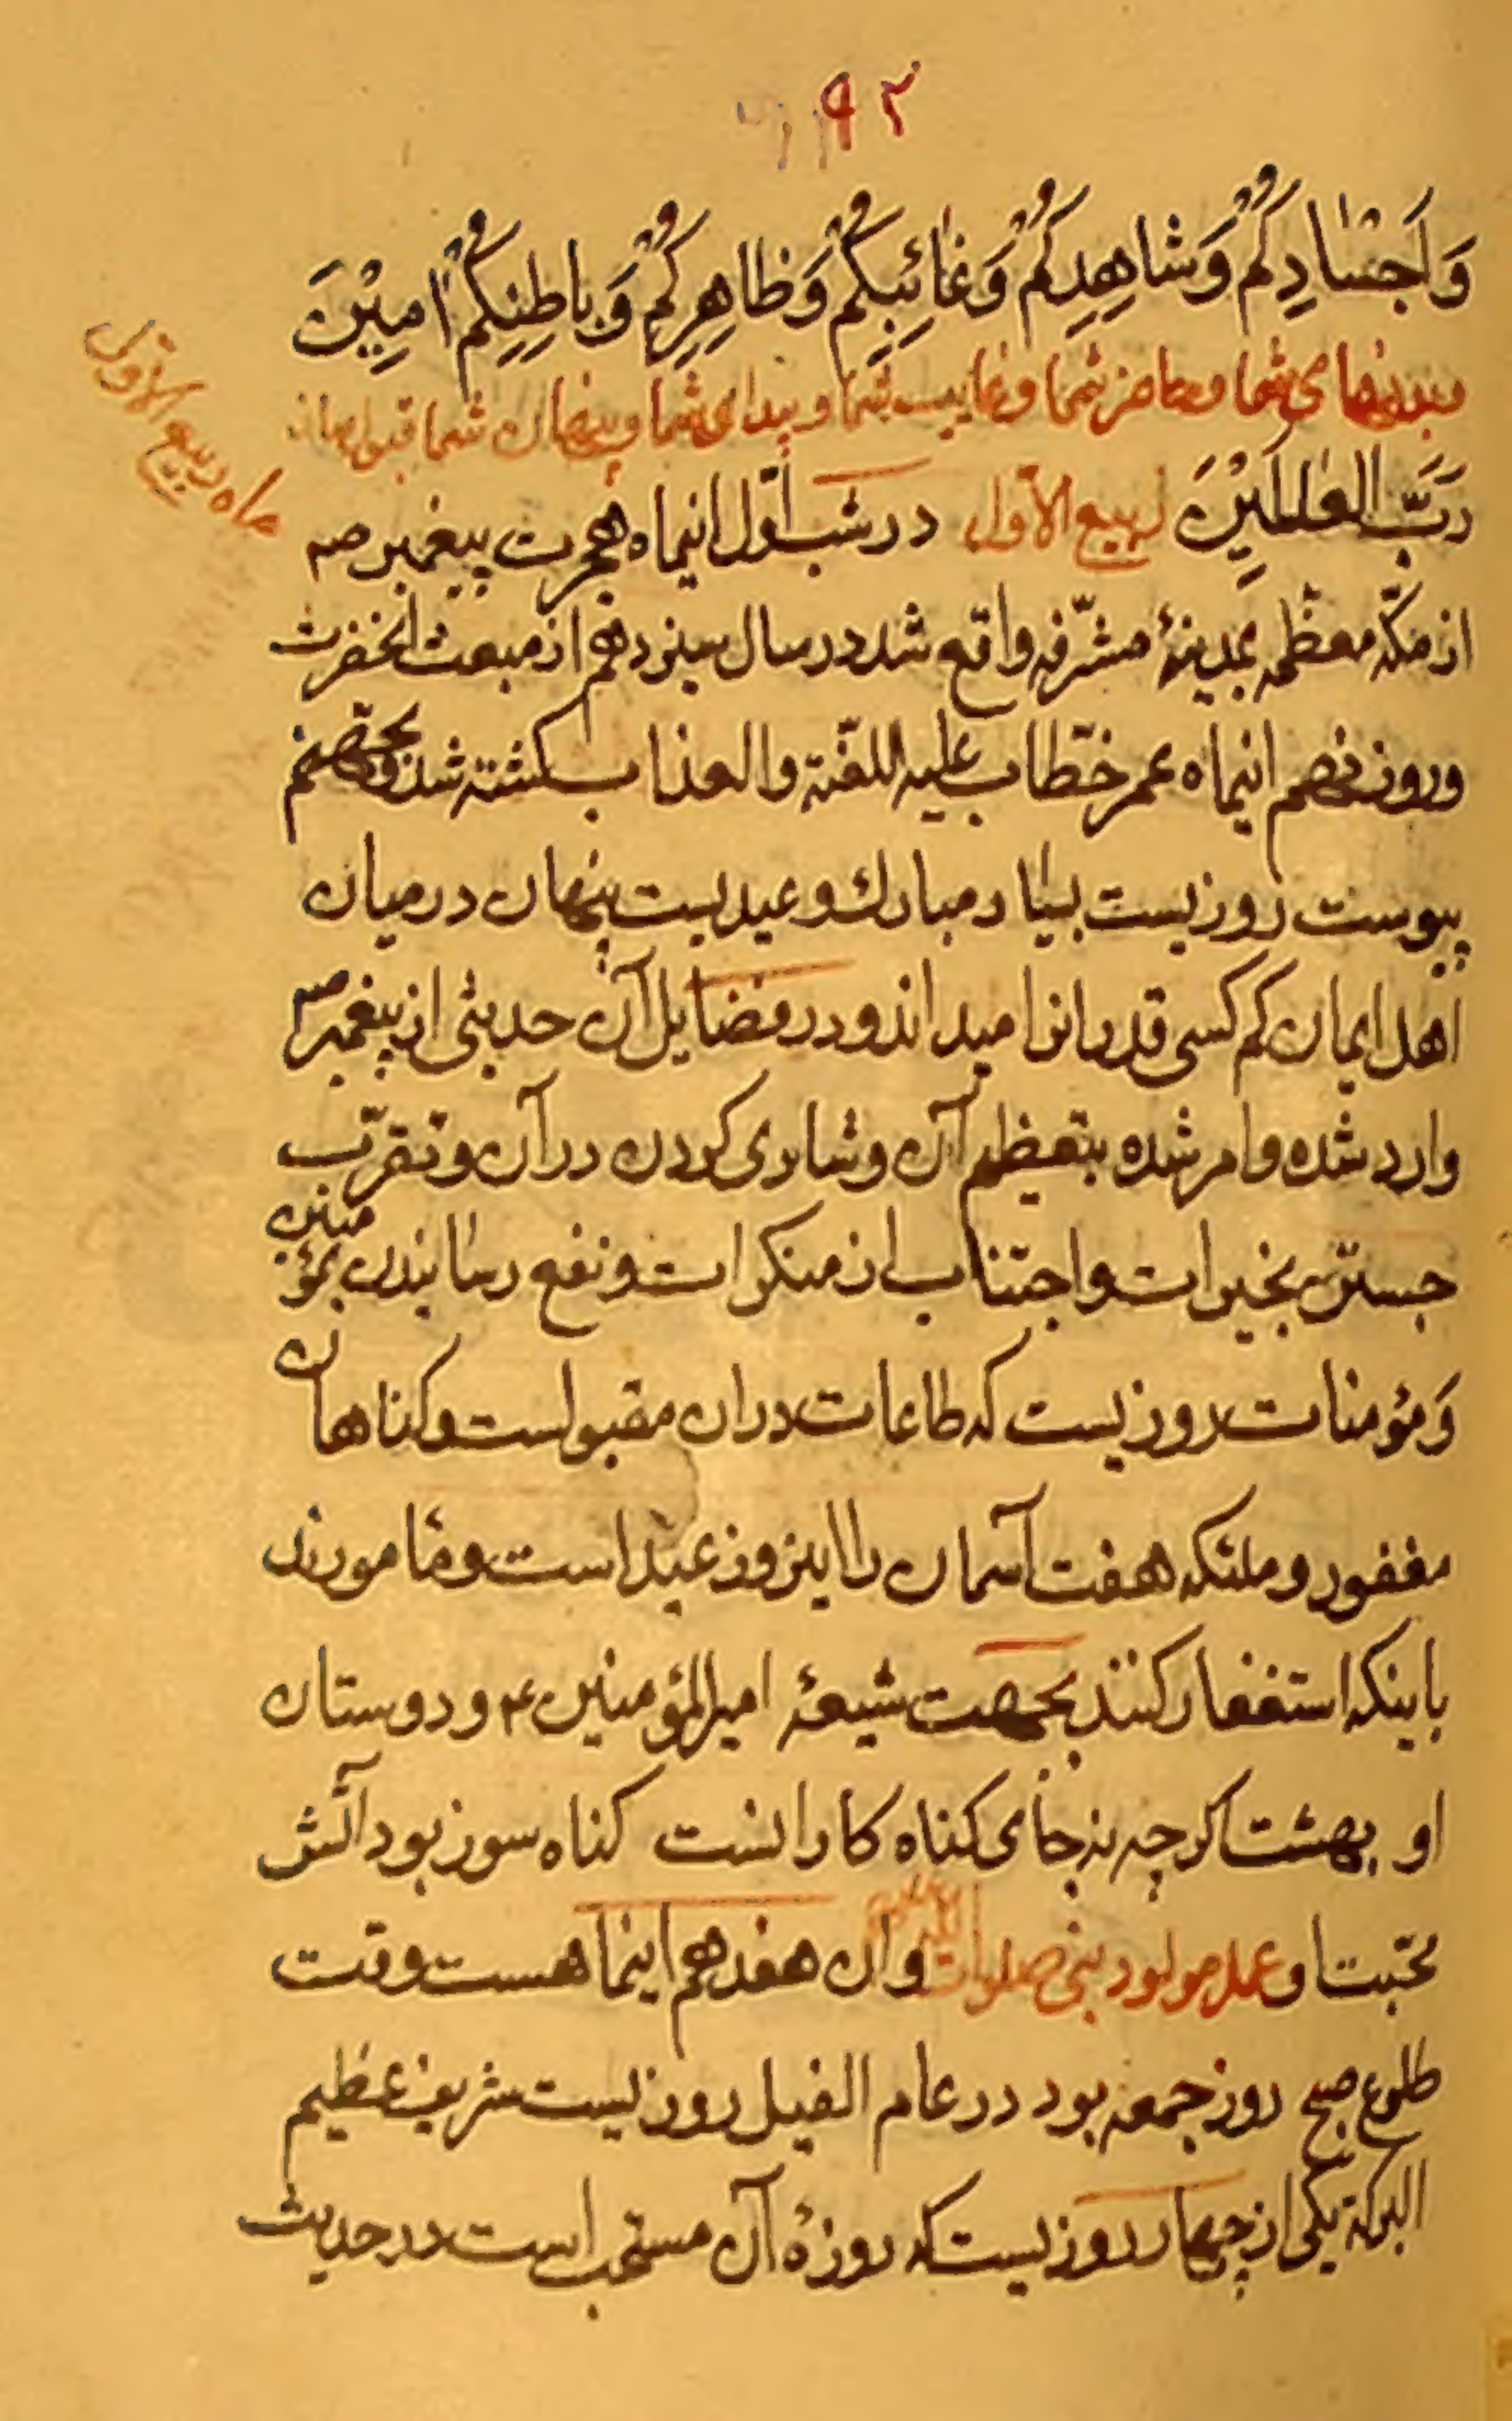 ۹۲
وَاَجْسٰادِكُمْ وَشاهِدِكُمْ وَغٰائِبِكُمْ وَظاهِرِكُمْ وَباطِنِكُمْ اٰمِيْنَ
وبدنهای شما وحاضر شما وغایب شما وپیدای شما وپنهان شما قبول نما
ماه ربیع الاول
رَبَّ الْعٰالَمِيْنَ ربیع الاول در شب اول اینماه هجرت پیغمبر صم
از مکّه معظّمه بمدینهٔ مشرّفه واقع شد در سال سیزدهم از مبعث انحضرت
وروز نهم اینماه عمر خطّاب علیه اللعّنة والعذاب کشته شد وبجهنم
پیوست روزیست بسیار مبارک وعیدیست پنهان در میان
اهل ایمان کم کسی قدر انرا میداند ودر فضایل آن حدیثی از پیغمبر صم
وارد شده وامر شده بتعظیم آن وشادی کردن در آن وتقرّب
جستن بخیرات واجتناب از منکرات ونفع رسانیدن بمؤمنین
وَمؤمنات روزیست که طاعات دران مقبولست وکناهان
مغفور وملئکه هفت آسمان را اینروز عید است ومٔامورند
باینکه استغفار کنند بجهت شیعهٔ امیرالمؤمنین ع ودوستان
او بهشت اکرچه نه جای کناه کارانست کناه سوز بود آتش
محبّت او عمل مولود نبی صلوات الله علیه وان هفدهم اینماهست وقت
طلوع صبح روز جمعه بود در عام الفیل روزیست شریف عظیم
البرکة یکی از چهار روزیست که روزهٔ آن مستحب است در حدیث